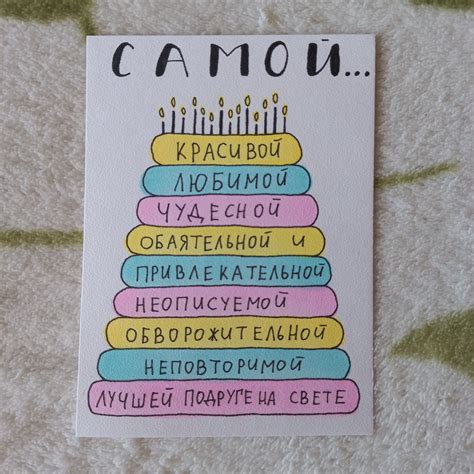 САМОЙ...
КРАСИВОЙ
ЛЮБИМОЙ
ЧУДЕСНОЙ
ОБАЯТЕЛЬНОЙ И
ПРИВЛЕКАТЕЛЬНОЙ
НЕОПИСУЕМОЙ
ОБВОРОЖИТЕЛЬНОЙ
НЕПОВТОРИМОЙ
ЛУЧШЕЙ ПОДРУГЕ НА СВЕТЕ